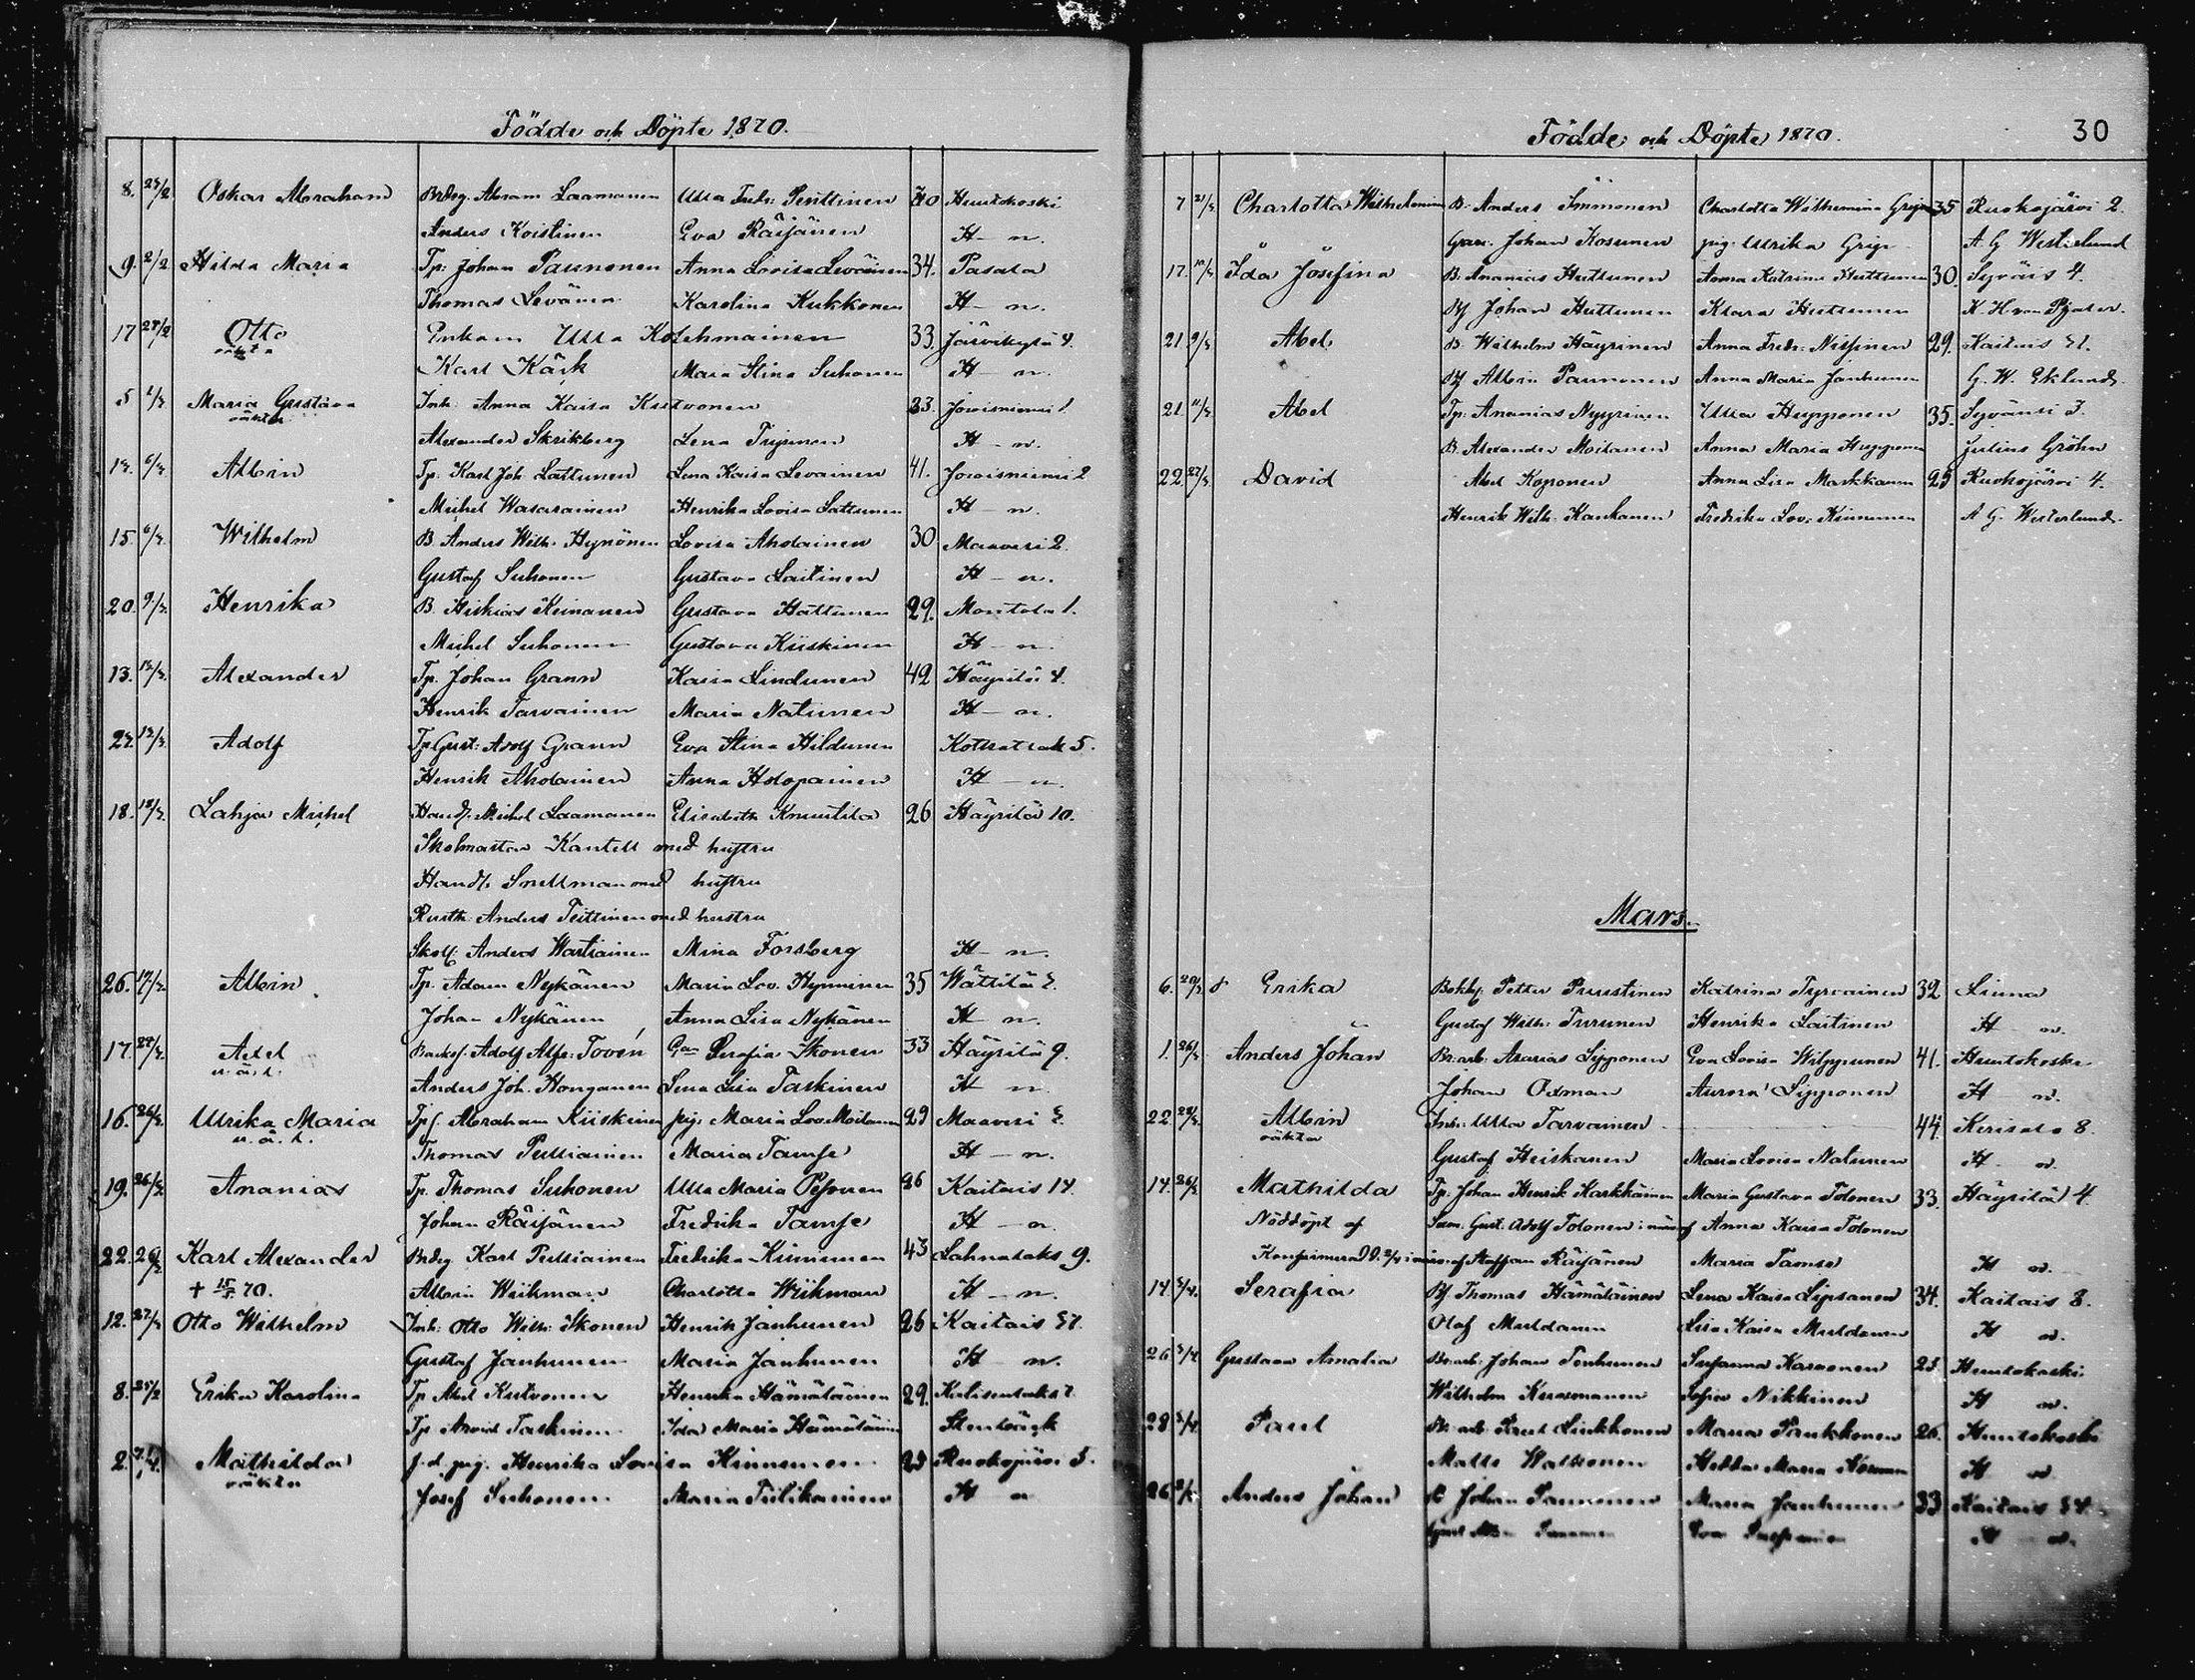 Födde och Döpte 1870.
8. Oskar Abraham Abram Laamanen Ulla Fredr: Penttinen 40 Huutokoski
Anders Koistinen Eva Räisänen H - n.
9. 2/2 Hilda Maria Tp: Johan Paunonen Anna Lovisa Leväinen 34. Pasala
Thomas Karolina Kukkonen H - n.
17 Otto Enkan Ulla Kolehmainen 33. Järvikylä 4.
oäkta Karl Käck Maria Stina Suhonen H - n.
5 Maria Gustava Inh: Anna Kaisa Kutvonen 33. Joroisniemi 1.
oäkta Alexander Skrikberg Lena H - n.
14. 6/3. Albin Tp. Karl Joh. Lattunen Lena Kaisa Levainen 41. Joroisniemi 2
Michel Wasarainen Henrika Lovisa Lattunen H - n.
15. 6/3. Wilhelm B. Anders Wilh. Hynönen Lovisa Aholainen 30 Maavesi 2.
Gustaf Suhonen Gustava Laitinen H - n.
20. 9/3. Henrika B. Hiskias Keinanen Gustava Hattunen 29. Montola 1.
Michel Suhonen Gustava Kiiskinen H - n.
13. Alexander Tp. Johan Grann Kaisa Lindunen 42 Häyrilä 4.
Henrik Tarvainen Maria Natunen H - n.
Adolf Tp. Gust: Adolf Grann Eva Stina Hildunen Kotkatlaks 5.
Henrik Aholainen Anna Holopainen H - n.
18. Lahja Michel Handl. Michel Laamanen Elisabeth Knuutila 26 Häyrilä 10.
Skolmästar Kantell med hustru
Handl. Snellman med hustru
Anders Teittinen med hustru
Anders Wartiainen Mina Forsberg H - n.
26. Albin Tp. Adam Nykänen Maria Lov. Hynninen 35 Wättilä 2.
Johan Nykänen Anna Lisa Nykänen H - n.
17. Axel Adolf Alfr: Tovén Serafia Ikonen 33 Häyrilä 9.
u. ä. b. Anders Joh. Honganen Lena Lisa Taskinen H - n.
16. Ulrika Maria Abraham Kiiskinen pig: Maria Lov. Moilanen 29 Maavesi
u. ä. b. Thomas Pulliainen Maria Tamse H - n.
19. Ananias Tp. Thomas Suhonen Ulla Maria Pesonen 26 Kaitais 14.
Johan Räisänen Fredrika Tamse H - n.
22. Karl Alexander Karl Pulliainen Fredrika Kinnunen 43 Lahnalaks 9.
+ 70. Albin Wiikman Charlotta Wiikman H - n.
12. 27/3 Otto Wilhelm Inh: Otto Wilh: Ikonen Henrik Janhunen 26 Kaitais
Gustaf Janhunen Maria Janhunen H n.
8. Erika Karolina Tp. Abel Kutvonen Henrika Hämäläinen 29.
Tp. Arvid Taskinen Ida Maria Hämäläinen Stenbäck
2. Mathilda pig. Henrika Lovisa Kinnunen 29 Ruokojärvi 5.
oäkta Josef Suhonen Maria Tiilikainen H n
Födde och Döpte 1870.
30
7 Charlotta Wilhelmina B. Anders Immonen Charlotta Wilhelmina Grip 35 Ruokojärvi 2.
Johan Kosunen pig. Ulrika Grip A. G. Westerlund
17. Ida Josefina B. Ananias Huttunen Anna Katrina Huttunen 30. Syväis 4.
Johan Huttunen Klara Huttunen K. H.
21 Abel B. Wilhelm Häyrinen Anna Fredr: Nissinen 29. Kaitais
Albin Paunonen Anna Maria Janhunen G. W. Eklund.
21. Abel Tp. Ananias Nyyrinen Ulla Hupponen 35. Syvänsi 3.
B. Alexander Moilanen Anna Maria Hupponen Julius Gröhn
22. 27/3. David Abel Koponen Anna Lisa Markkanen 25 Ruokojärvi 4.
Henrik Wilh. Kankanen Fredrika Lov: Kinnunen A. G. Westerlund.
Mars.
6. Erika Petter Puustinen Katrina Tyrvainen 32 Liuna
Gustaf Wilh: Turunen Henrika Laitinen H n.
1. 26/3. Anders Johan Asarias Sipponen Eva Lovisa Wilppunen 41. Huutokoski
Johan Oxman Aurora Sipponen H n.
22 Albin Inh: Ulla Tarvainen 44. Kerisalo 8.
oäkta Gustaf Heiskanen Maria Lovisa Natunen H n.
14. 26/3. Mathilda Tp. Johan Henrik Karkkäinen Maria Gustava Tolonen 33. Häyrilä 4.
Nöddöpt af Gust. Adolf Tolonen: Anna Kaisa Tolonen
af Staffan Räisänen Maria Tamse H n.
14. Serafia Thomas Hämäläinen Lena Kaisa Lipsanen 34. Kaitais 8.
Olof Muldanen Lisa Kaisa Muldanen H n.
26 Gustava Amalia Johan Tenhunen Susanna Karvonen 23. Huutokoski
Wilhelm Sofia Nikkinen H n.
28 Paul Paul Linkkonen Maria Paukkonen 26. Huutokoski
Matts Hedda Maria H n.
26 Anders Johan Johan Paunonen Maria Janhunen 33 Kaitais
H n.